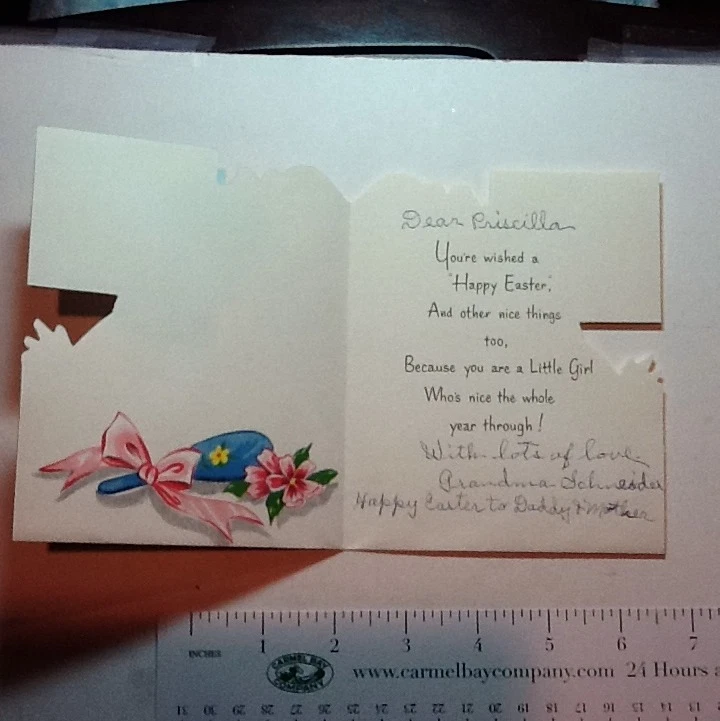 Dear Priscilla
You're wished a
"Happy Easter",
And other nice things
too,
Because you are a Little Girl
Who's nice the whole
year through!
With lots of love
Grandma Schneider
Happy Easter to Daddy & Mother
1 2 3 4 5 6 7
INCHES
CARMEL BAY
COMPANY
www.carmelbaycompany.com 24 Hours a
31 30 29 28 27 26 25 24 23 22 21 20 19 18 17 16 15 14 13